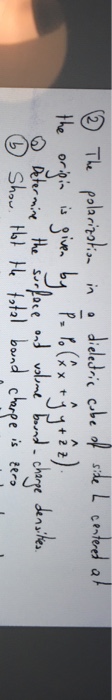 ② The polarization in a dielectric cube of side L centered at
the origin is given by P̄ = P₀(x̂x + ŷy + ẑz).
ⓐ Determine the surface and volume bound-charge densities.
ⓑ Show that the total bound charge is zero